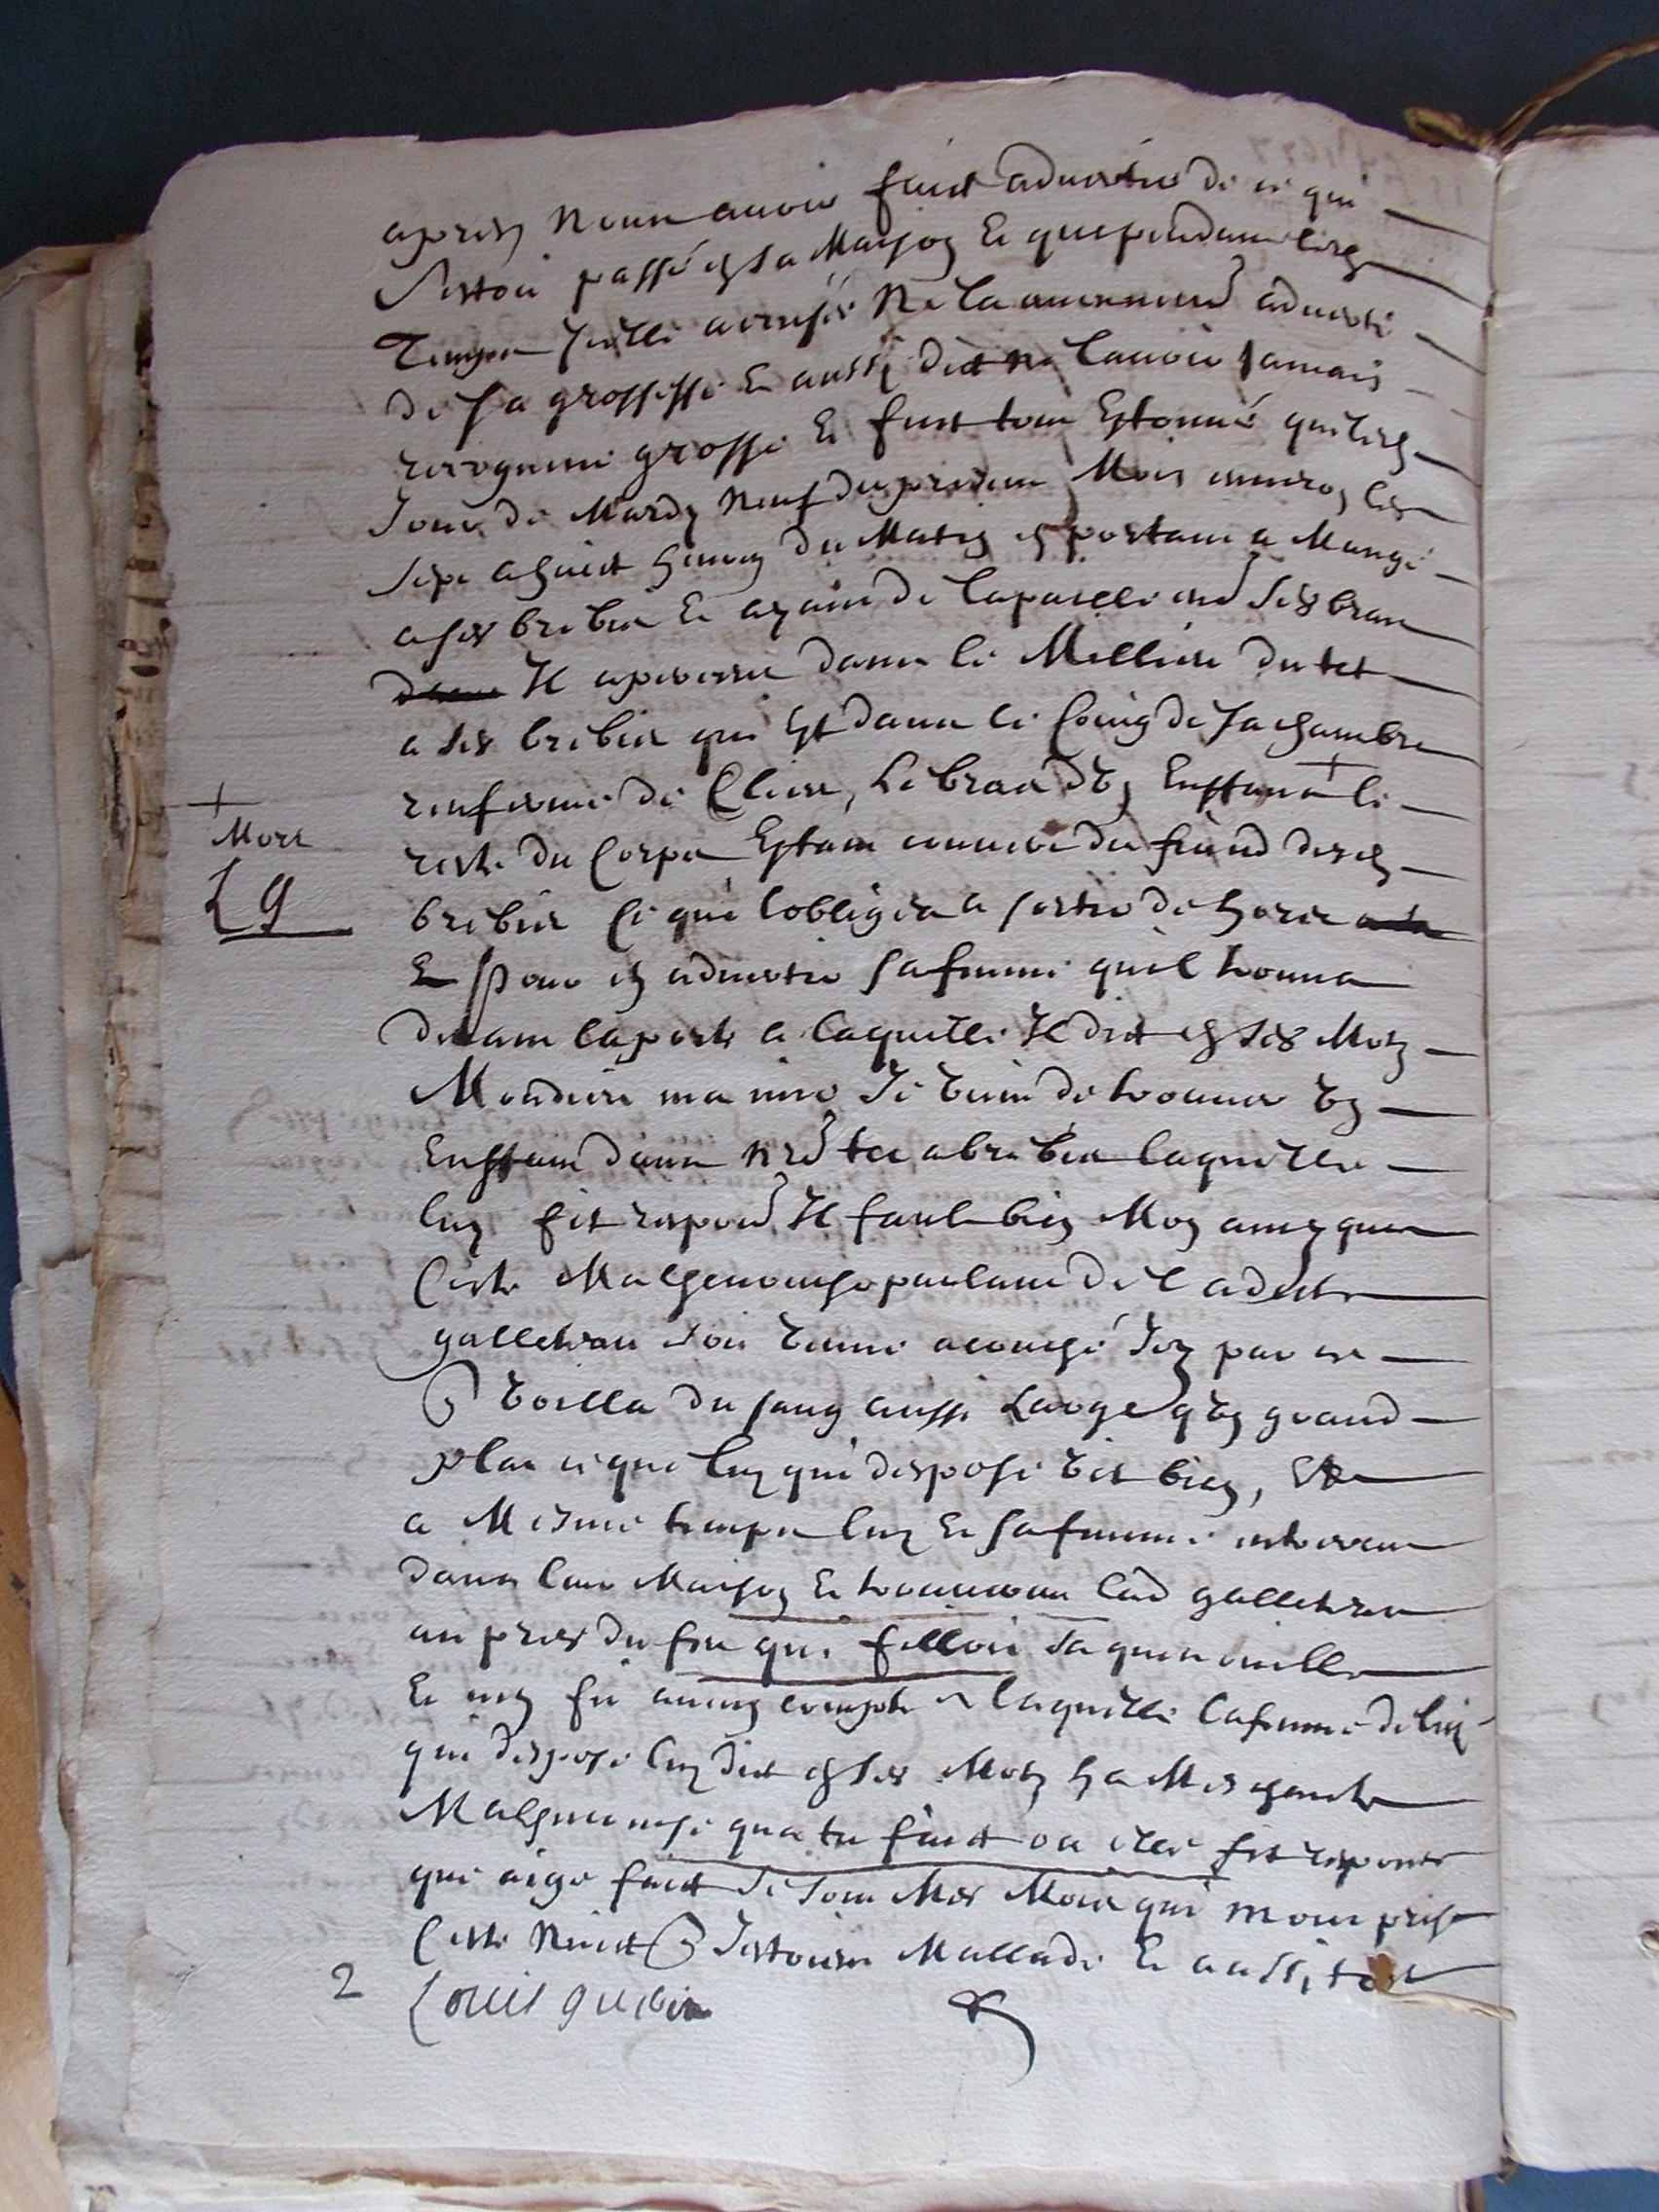 apres nous avoir faict advertir de ce qui
sestoit passé en sa maison Et que pendant led
temps icelle accusée ne la aucunemt adverti
de sa grossesse Et aussi dict ne lavoir jamais
recogneue grosse Et fust tout estonné que led
jour de mardy neuf du present mois environ les
sept a huict heures du matin en portant a mangé
a ses brebis Et ayant de la paille entre ses bras
Il aperceut dans le millieu du tet
a ses brebis qui est dans le coing de sa chambre
renfermé de cloies, le bras d'un enffant + le
reste du corps estant couvert du fiend desd
brebis ce qui lobligea a sortir dehors
Et pour en advertir sa femme quil trouva
devant la porte a laquelle Il dict en ses motz
mondieu ma mie Je viens de trouver un
enffant dans nre tet a brebis laquelle
luy fit respon Il fault bien mon amy que
ceste malheureuse parlant de lad
galleteau soit venue acouché icy par
voilla du sang aussi large qun grand
plat ce que luy qui depose vit bien, Et
a mesme temps luy Et sa femme entrerent
dans leur maison Et trouverent lad galleteau
au pres du feu qui filloit sa quenouille
Et nen fit aucun compte a laquelle la femme de luy
qui depose luy dict en ses motz ha meschante
malheureuse qua tu faict ou elle fit response
que aige faict Ce sont mes mois qui mont pris
ceste nuict Jestois mallade Et aussi tost
+
Mort
2
Louis